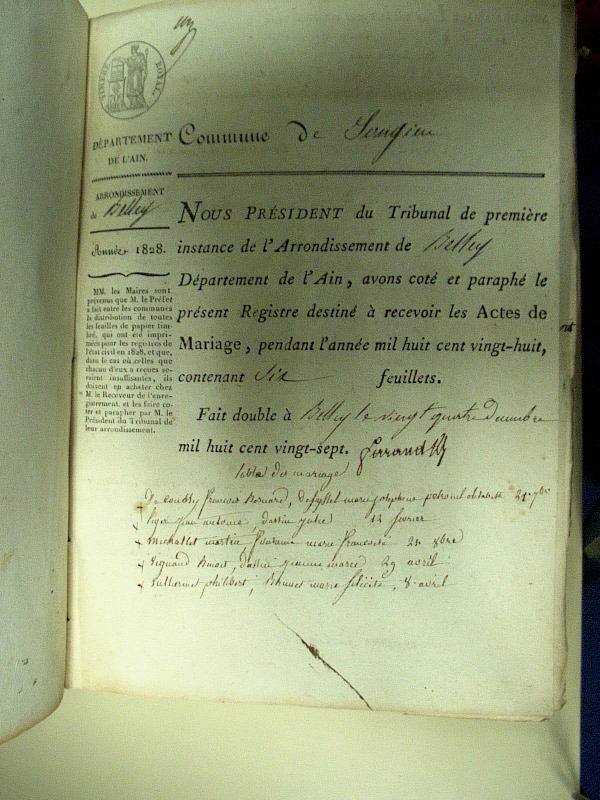 TIMBRE ROYAL.
DÉPARTEMENT
DE L'AIN.
ARRONDISSEMENT
de Belley
Année 1828.
MM. les Maires sont
prévenus que M. le Préfet
a fait entre les communes
la distribution de toutes
les feuilles de papier tim-
bré, qui ont été impri-
mées pour les registres de
l'état civil en 1828, et que,
dans le cas où celles que
chacun d'eux a reçues se-
raient insuffisantes, ils
doivent en acheter chez
M. le Receveur de l'enre-
gistrement, et les faire co-
ter et parapher par M. le
Président du Tribunal de
leur arrondissement.
Commune de Songieu
NOUS PRÉSIDENT du Tribunal de première
instance de l'Arrondissement de Belley
Département de l'Ain, avons coté et paraphé le
présent Registre destiné à recevoir les Actes de
Mariage, pendant l'année mil huit cent vingt-huit,
contenant Six feuillets.
Fait double à Belley le vingt quatre Decembre
mil huit cent vingt-sept.
table des mariage
françois Bernard, marie josephine 21 7bre
jean antoine, dassin julie 12 fevrier
Michallet martin, marie françoise 21 8bre
Benoit, dassin jeanne marie 29 avril
philibert, marie félicité, 8 avril